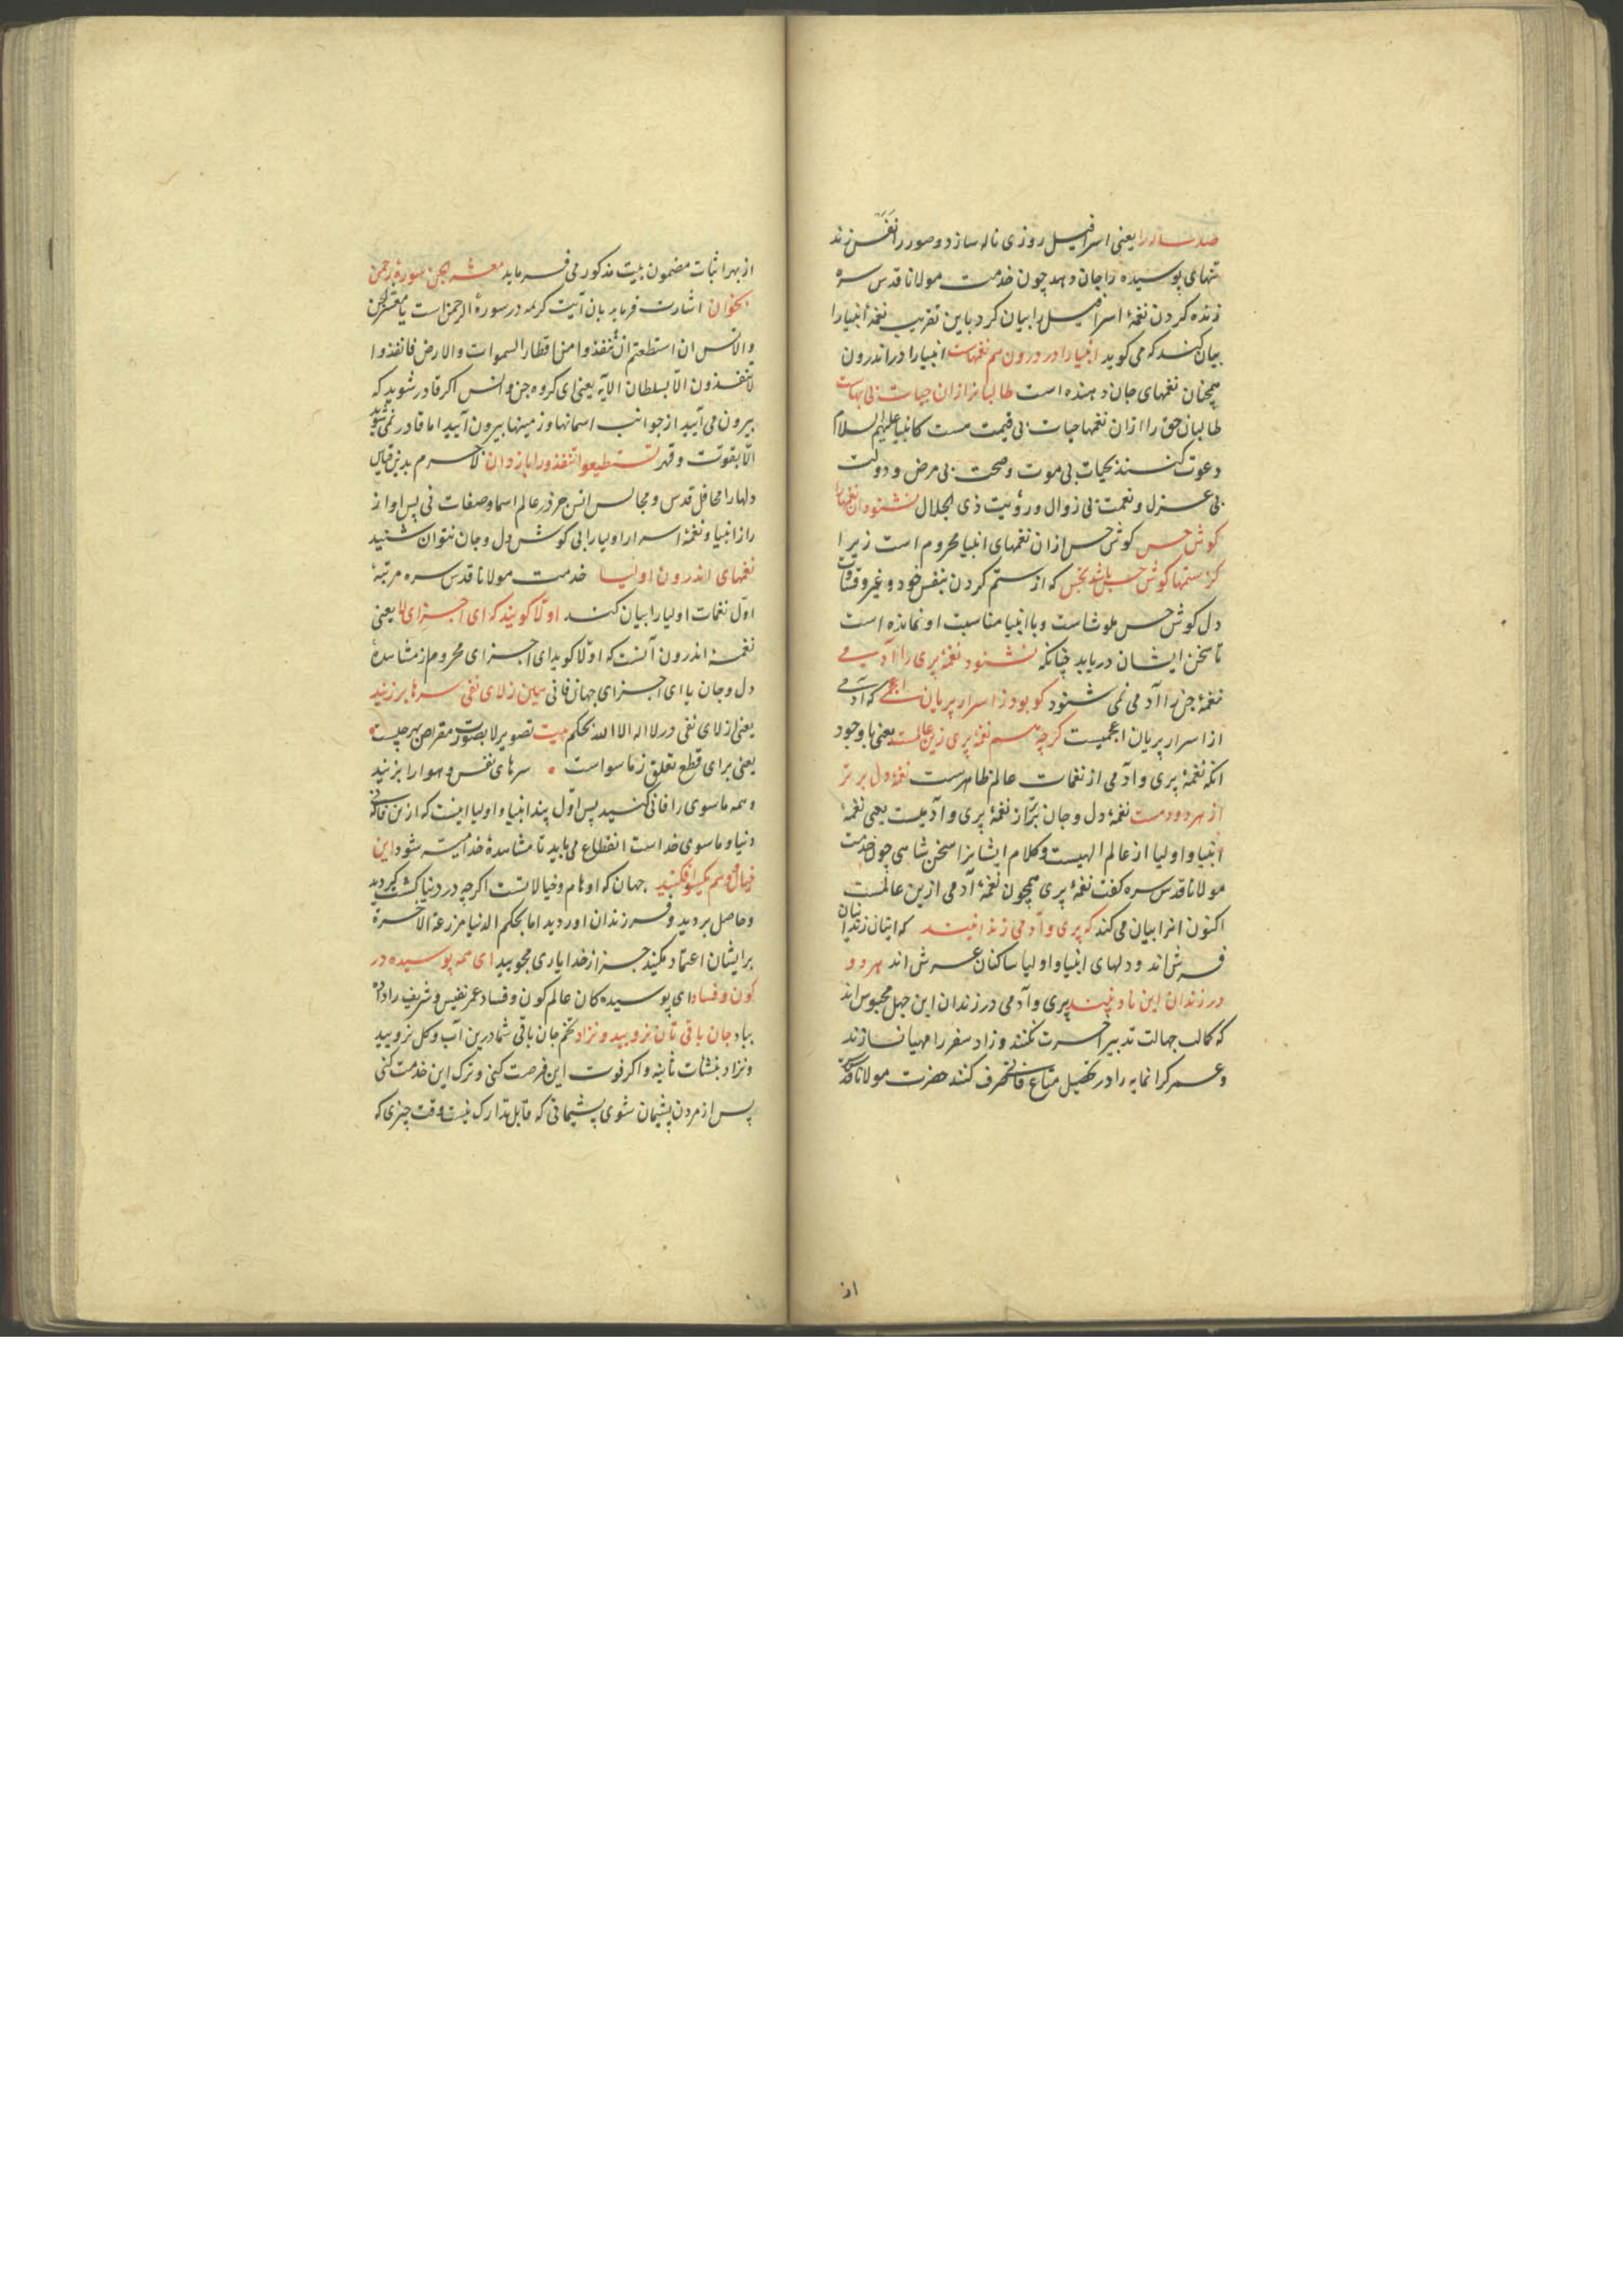 صد ساله را یعنی اسرافیل روزی ناله سازد و صور را نفس زند
تنهای پوسیده را جان دهد چون خدمت مولانا قدس سره
زنده کردن نغمهٔ اسرافیل را بیان کرد باین تقریب نغمهٔ انبیا را
بیان کند که می کوید انبیا را در درون هم نغمهاست انبیا را در اندرون
همچنان نغمهای جان دهنده است طالبانرا زان حیات بی بهاست
طالبان حق را ازان نغمها حیات بی قیمت هست کانبیا علیهم السلام
دعوت کنند بحیات بی موت و صحت بی مرض و دولت
بی عزل و نعمت بی زوال و رؤیت ذی الجلال نشنود آن نغمها را
کوش حس کوش حس ازان نغمهای انبیا محروم است زیرا
کز ستمها کوش حس باشد نجس که از ستم کردن بنفس خود و غیر و قساوت
دل کوش حس ملوث است و با انبیا مناسبت او نمانده است
تا سخن ایشان دریابد چنانکه نشنود نغمهٔ پری را آدمی
نغمهٔ جن را آدمی نمی شنود کو بود ز اسرار پریان اعجمی که آدمی
از اسرار پریان اعجمیست کرچه هم نغمهٔ پری زین عالمست یعنی با وجود
انکه نغمهٔ پری و آدمی از نغمات عالم ظاهرست نغمهٔ دل برتر
از هر دو دمست نغمهٔ دل و جان برتر از نغمهٔ پری و آدمیست یعنی نغمهٔ
انبیا و اولیا از عالم الهیست و کلام ایشانرا سخن شاهی چون خدمت
مولانا قدس سره کفت نغمهٔ پری همچون نغمهٔ آدمی ازین عالمست
اکنون انرا بیان می کند که پری و آدمی زندانیند که ایشان زندانیان
فرش اند و دلهای انبیا و اولیا ساکنان عرش اند هر دو
در زندان این نادانیند پری و آدمی در زندان این جهل محبوس اند
که کالب جهالت تدبیر آخرت نکنند و زاد سفر را مهیا نسازند
و عمر کرانمایه را در تحصیل متاع فانی صرف کنند حضرت مولانا قدس
از
از بهر اثبات مضمون بیت مذکور می فرماید معشر الجن سورهٔ رحمن
بخوان اشارت فرماید بان آیت کریمه در سورهٔ الرحمن است یا معشر الجن
والانس ان استطعتم ان تنفذوا من اقطار السموات والارض فانفذوا
لا تنفذون الا بسلطان الآیه یعنی ای کروه جن و انس اکر قادر شوید که
بیرون می آیید از جوانب اسمانها و زمینها بیرون آیید اما قادر نمی شوید
الا بقوت و قهر تستطیعوا تنفذوا را بازدان لا جرم بدین قیاس
دلها را محافل قدس و مجالس انس جز در عالم اسما و صفات نی پس اواز
راز انبیا و نغمهٔ اسرار اولیا را بی کوش دل و جان نتوان شنید
نغمهای اندرون اولیا خدمت مولانا قدس سره مرتبهٔ
اول نغمات اولیا را بیان کند اولا کویند که ای اجزای لا یعنی
نغمهٔ اندرون آنست که اولا کوید ای اجزای محروم از مشاهدهٔ
دل و جان یا ای اجزای جهان فانی هین ز لای نفی سرها بر زنید
یعنی از لای نفی در لا اله الا الله بحکم بیت تصویر لا بصورت مقراض بهر چیست
یعنی برای قطع تعلق ز ما سواست سرهای نفس و هوا را بزنید
و همه ما سوی را فانی کنید پس اول پند انبیا و اولیا اینست که ازین خاکدان
دنیا و ما سوی خداست انقطاع می باید تا مشاهدهٔ خدا میسر شود این
خیال و وهم یکسو افکنید جهان که اوهام و خیالاتست اکرچه در دنیا کشت کردید
و حاصل بردید و فرزندان اوردید اما بحکم الدنیا مزرعة الاخرة
بر ایشان اعتماد مکنید جز از خدا یاری مجویید ای همه پوسیده در
کون و فساد ای پوسیده کان عالم کون و فساد عمر نفیس و شریف را داده
بباد جان باقی تان نرویید و نزاد تخم جان باقی شما درین آب و کل نرویید
و نزاد بنشات ثانیه و اکر فوت این فرصت کنی و ترک این خدمت کنی
پس از مردن پشیمان شوی پشیمانی که قابل تدارک نیست وقت چیزی که